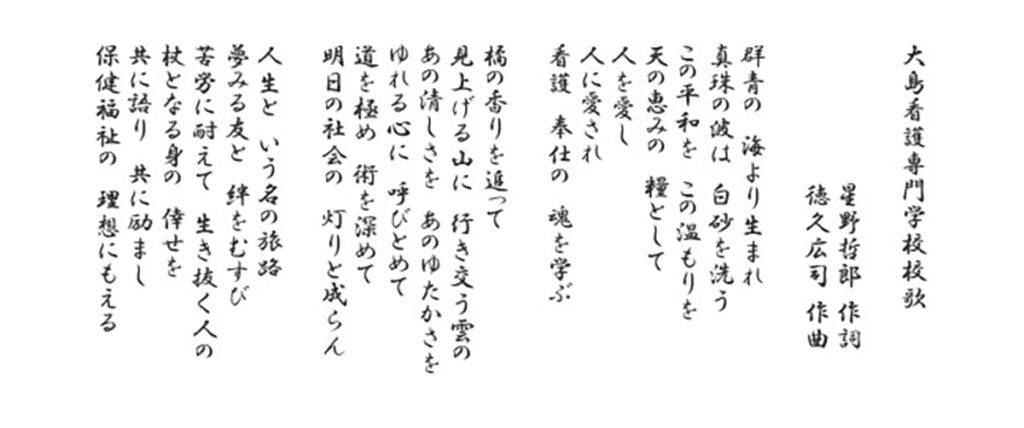 大島看護専門学校校歌
星野哲郎 作詞
徳久広司 作曲
群青の 海より生まれ
真珠の波は 白砂を洗う
この平和を この温もりを
天の恵みの 糧として
人を愛し
人に愛され
看護 奉仕の 魂を学ぶ
橘の香りを追って
見上げる山に 行き交う雲の
あの清しさを あのゆたかさを
ゆれる心に 呼びとめて
道を極め 術を深めて
明日の社会の 灯りと成らん
人生と いう名の旅路
夢みる友と 絆をむすび
苦労に耐えて 生き抜く人の
杖となる身の 倖せを
共に語り 共に励まし
保健福祉の 理想にもえる